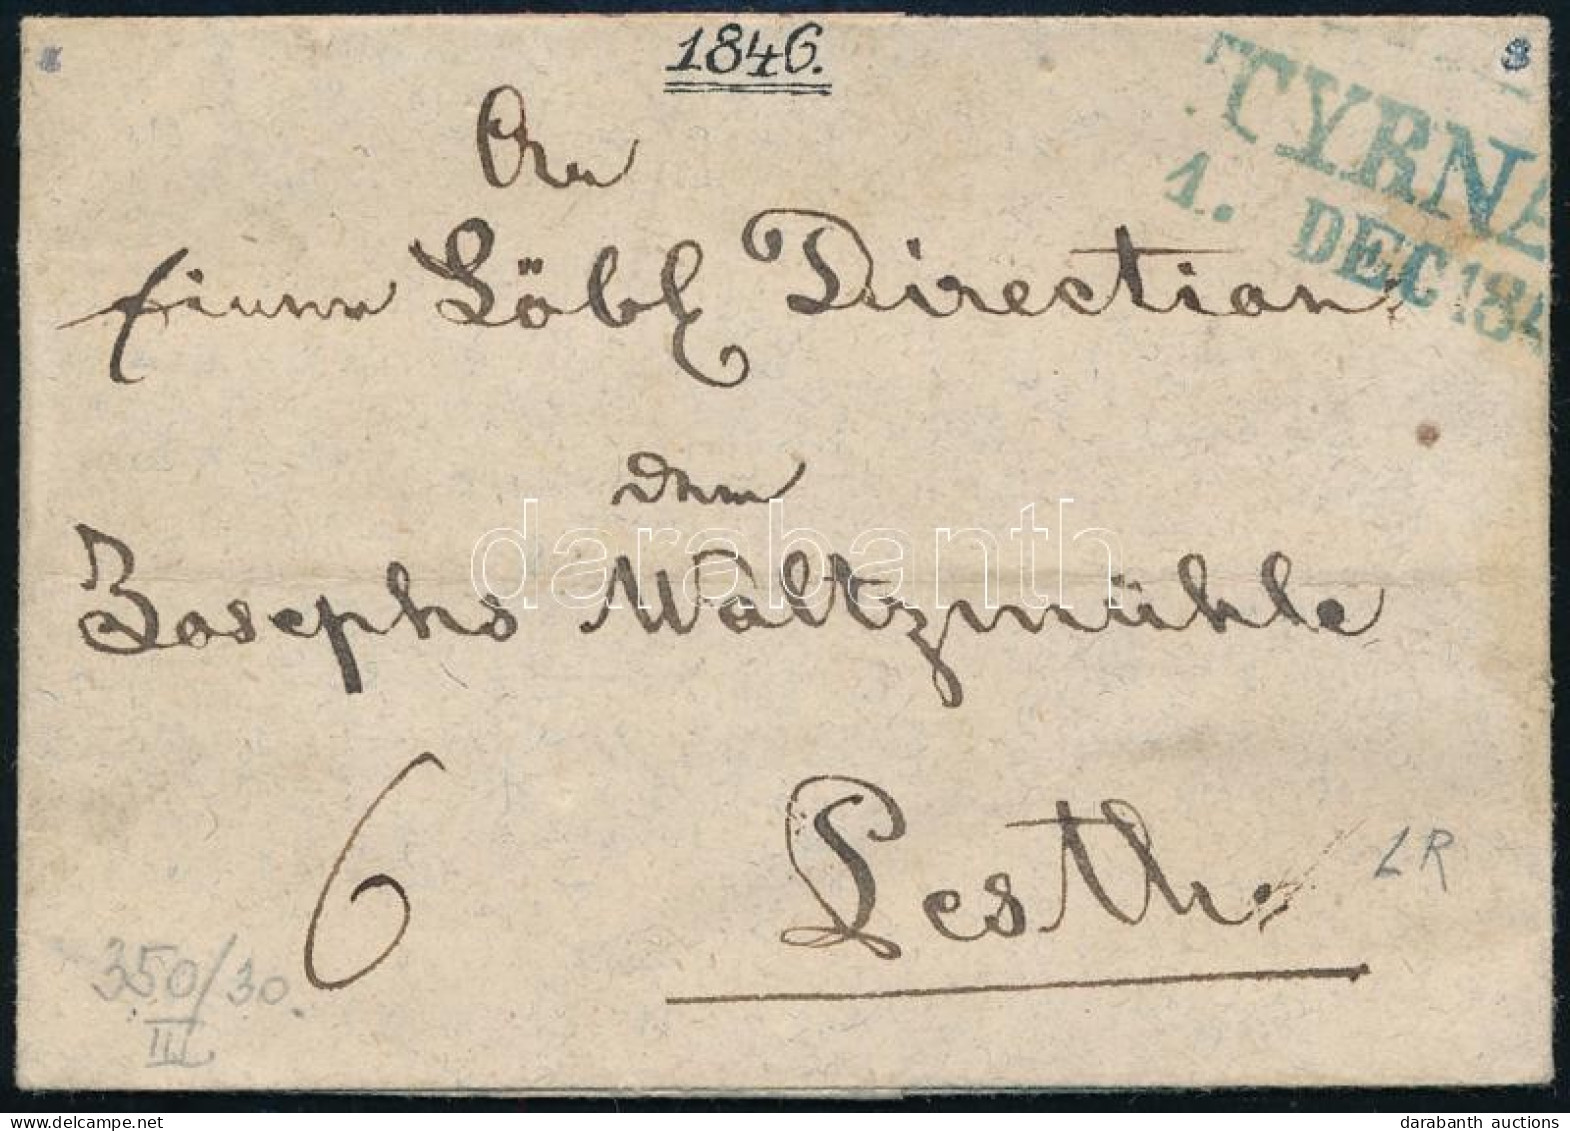 1846.
TYRNA
1. DEC 184
An
Einer Löbl Direction
der
Josephs Waltzmühle
6 Pesth
LR
350/30.
III
darabanth
darabanth auctions